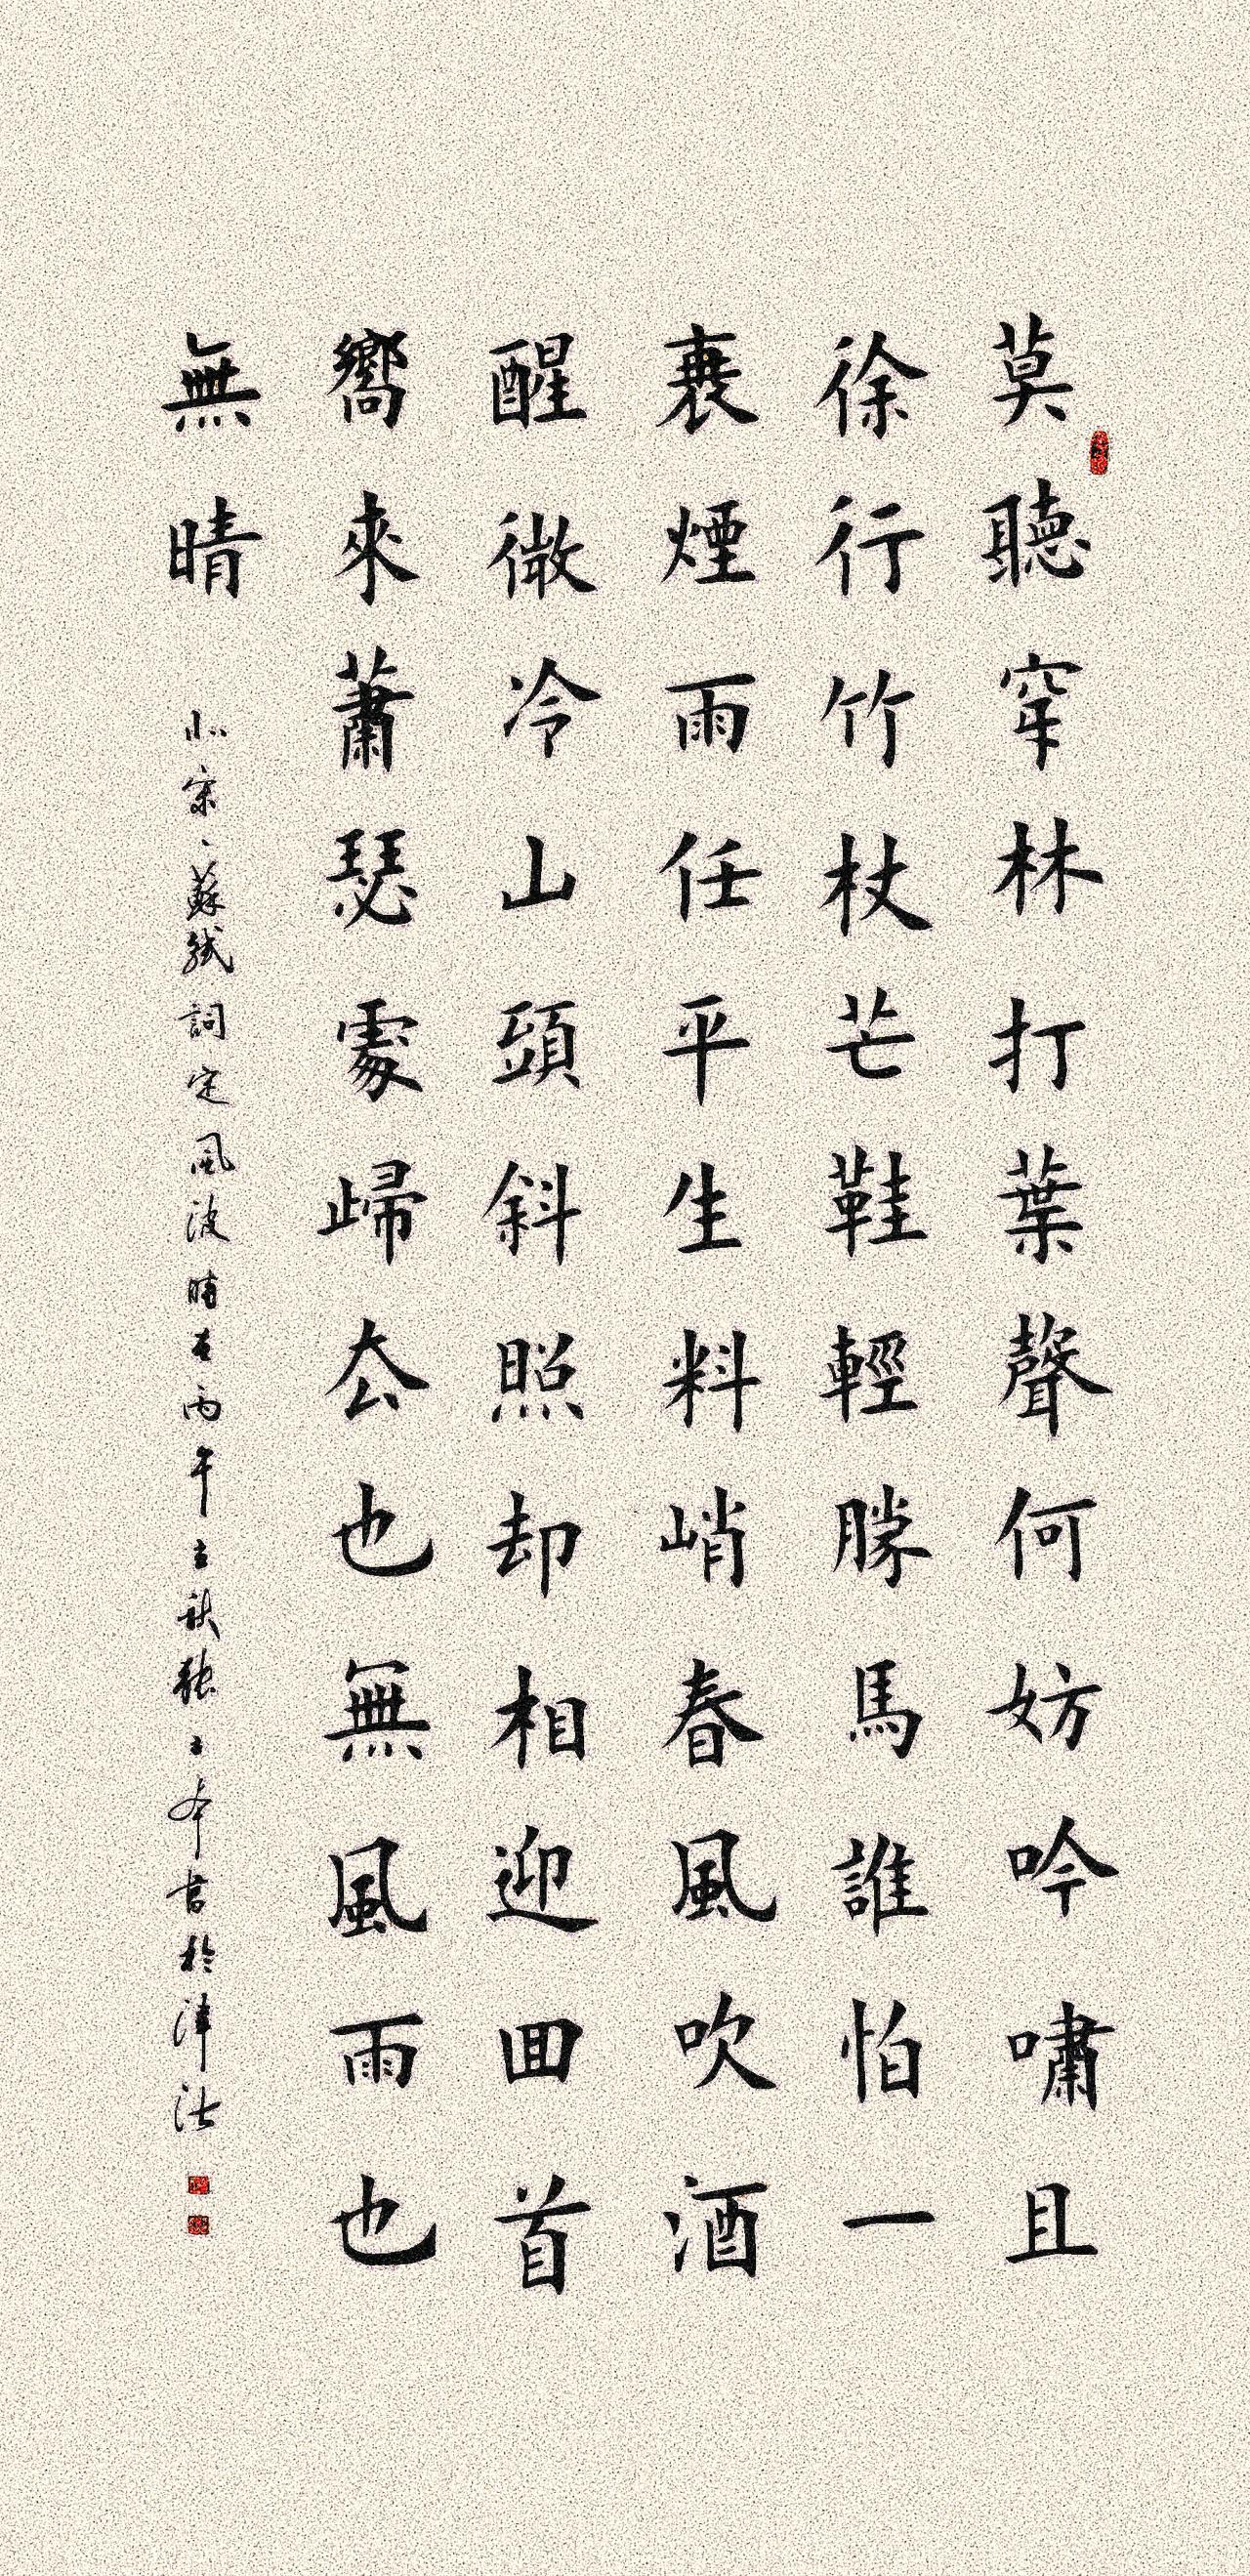 莫聽穿林打葉聲何妨吟嘯且
徐行竹杖芒鞋輕勝馬誰怕一
蓑煙雨任平生料峭春風吹酒
醒微冷山頭斜照却相迎回首
嚮來蕭瑟處歸去也無風雨也
無晴
北宋、蘇軾詞定風波時在丙午立秋張士本書於津沽